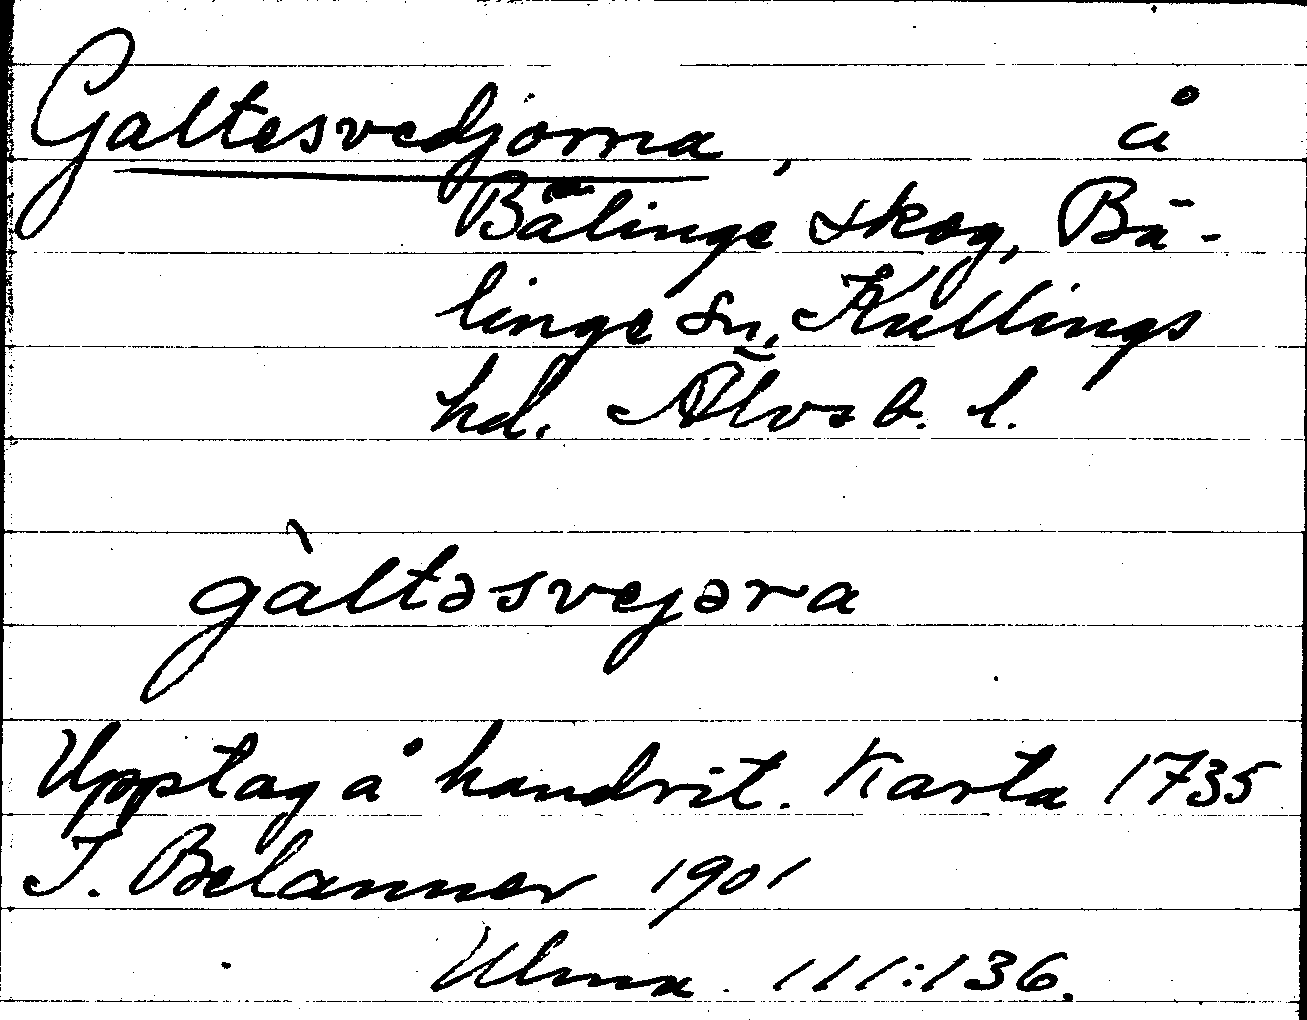 Galtesvedjorna, å
Bälinge skog, Bä-
linge sn, Kullings
hd. Älvsb. l.
gàltəsvejəra
Upptag å handrit. Karta 1735
J. Belanner 1901
Ulma 111:136.